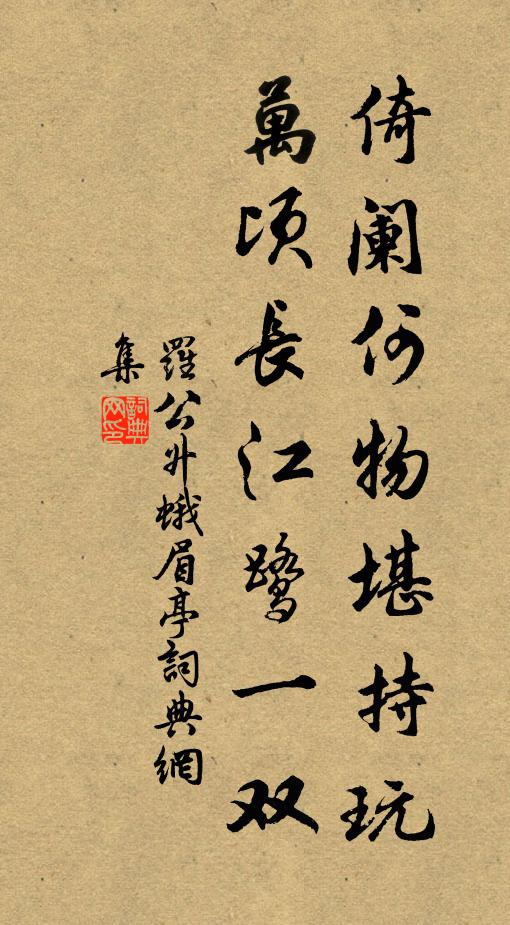 倚阑何物堪持玩
萬顷長江鹭一双
羅公升蛾眉亭詞典網
集
詞典网印